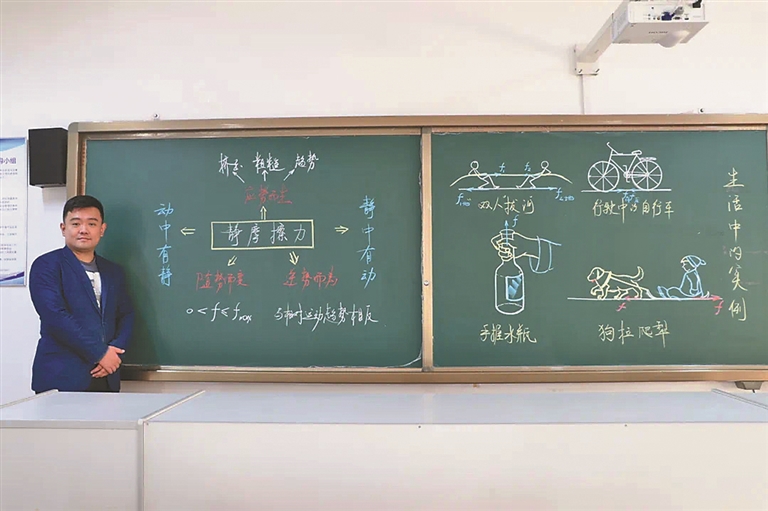 挤压 粗糙 趋势
因势而生
动中有静
静摩擦力
静中有动
随势而变 逆势而为
0<f≤fmax 与相对运动趋势相反
f₁ f₂
双人拔河
行驶中的自行车
f
手握水瓶
f f
狗拉爬犁
生活中的实例
小组